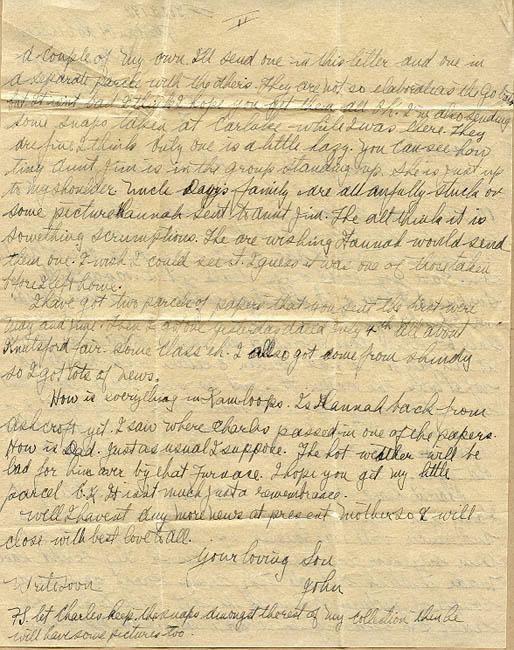 II
a couple of my own I'll send one in this letter and one in
a separate parcel with the others. They are not so elaborate as the
but I hope you get them all O.K. I'm also sending
some snaps taken at Carlisle while I was there. They
are fine I think only one is a little hazy. You can see how
tiny Aunt Jim is in the group standing up. She is just up
to my shoulder. Uncle Day's family are all awfully stuck on
some picture Hannah sent to Aunt Jim. The all think it is
something scrumptions. The are wishing Hannah would send
them one. I wish I could see it. I guess it was one of those taken
before I left home.
I have got two parcels of papers that you sent the first were
May and June. Then I got one yesterday dated July 4th all about
Knutsford fair. Some class eh. I also got some from Shindy
so I got lots of news.
How is everything in Kamloops. Is Hannah back from
Ashcroft yet. I saw where Charles passed in one of the papers.
How is Dad. Just as usual I suppose. The hot weather will be
bad for him over by that furnace. I hope you get my little
parcel O.K. It isnt much just a remembrance.
Well I havent any more news at present Mother so I will
close with best love to all.
Your loving Son
John
Write soon
P.S. let Charles keep the snaps amongst the rest of my collection then he
will have some pictures too.